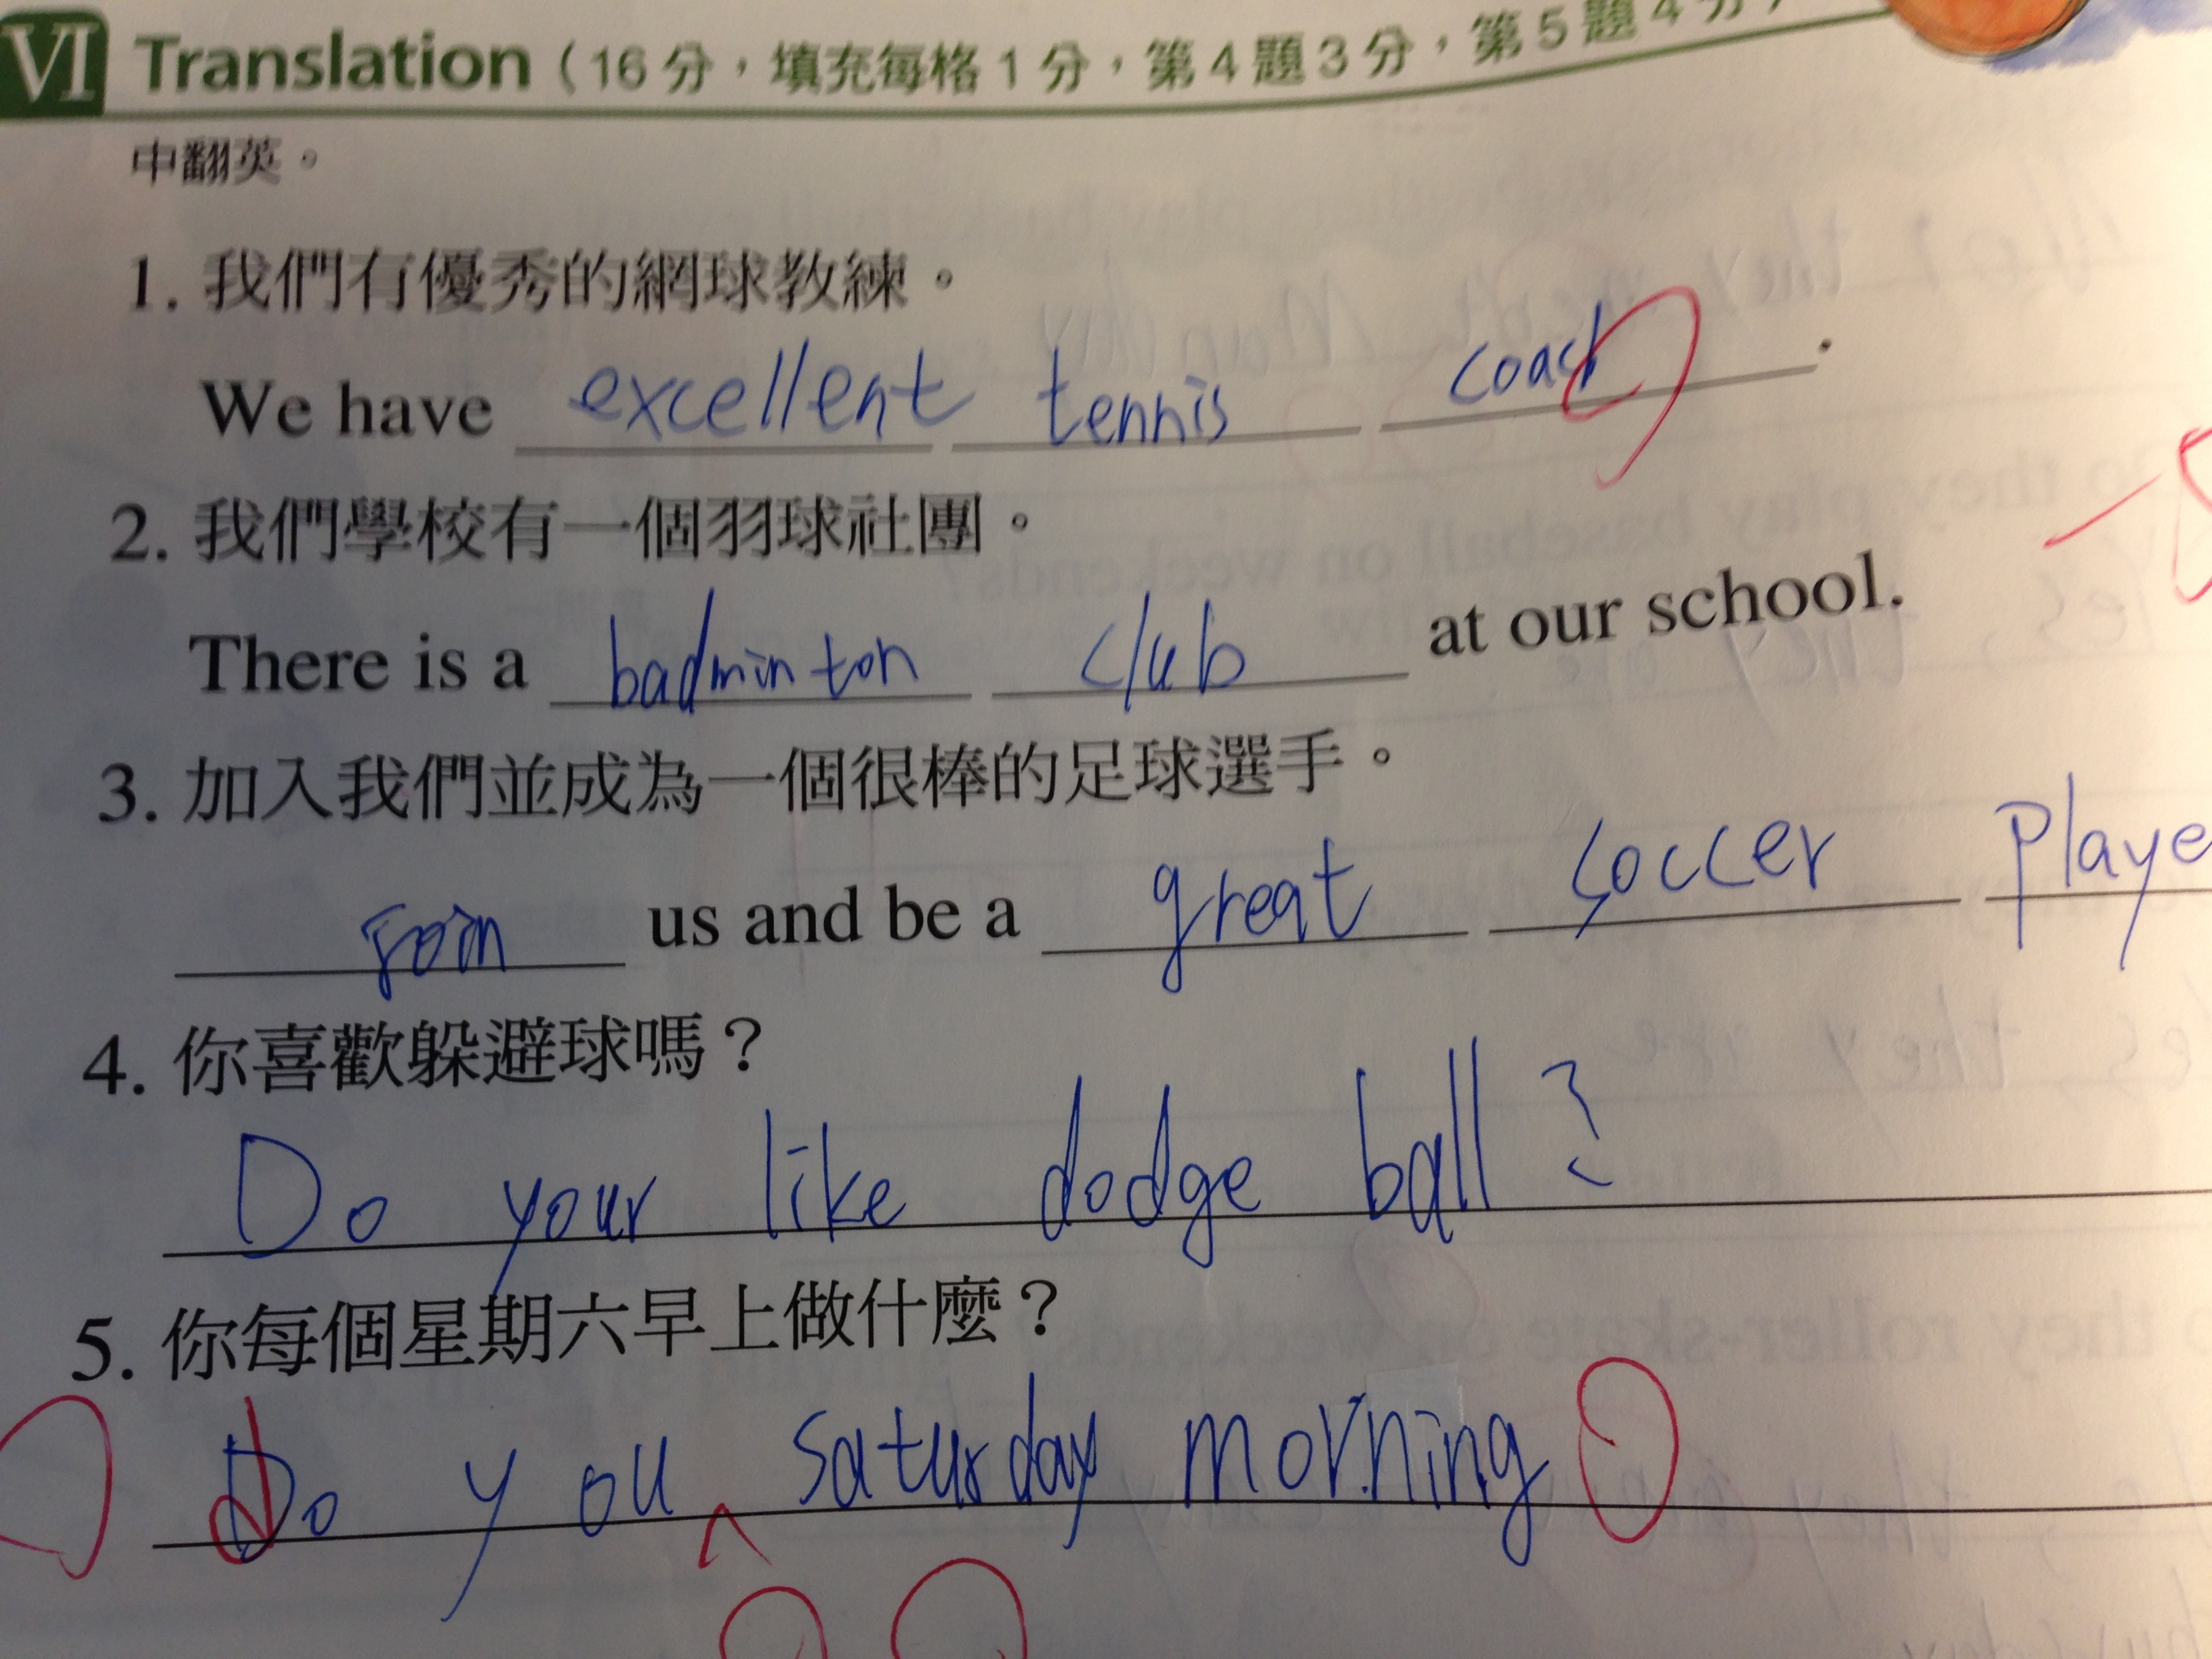 VI Translation (16分，填充每格1分，第4題3分，第5題4分，
中翻英。
1. 我們有優秀的網球教練。
We have excellent tennis coach .
2. 我們學校有一個羽球社團。
There is a badminton club at our school.
3. 加入我們並成為一個很棒的足球選手。
join us and be a great soccer Playe
4. 你喜歡躲避球嗎？
Do your like dodge ball ?
5. 你每個星期六早上做什麼？
Do you saturday morning